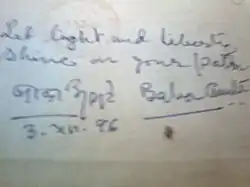 Let light and liberty
shine on your path
বাবা আমটে Baba Amte
3. XII. 96